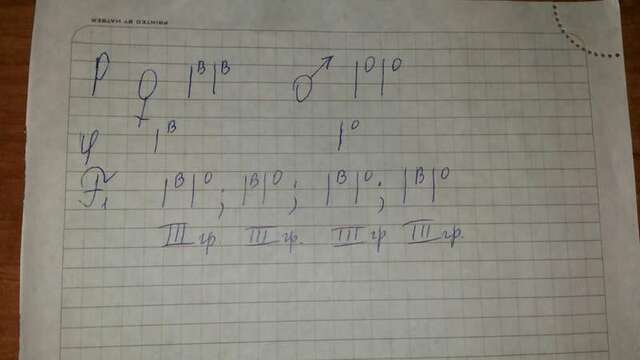 PRINTED BY HATBER
P ♀ IᴮIᴮ ♂ IᴼIᴼ
φ Iᴮ Iᴼ
F₁ IᴮIᴼ; IᴮIᴼ; IᴮIᴼ; IᴮIᴼ
III гр. III гр. III гр III гр.